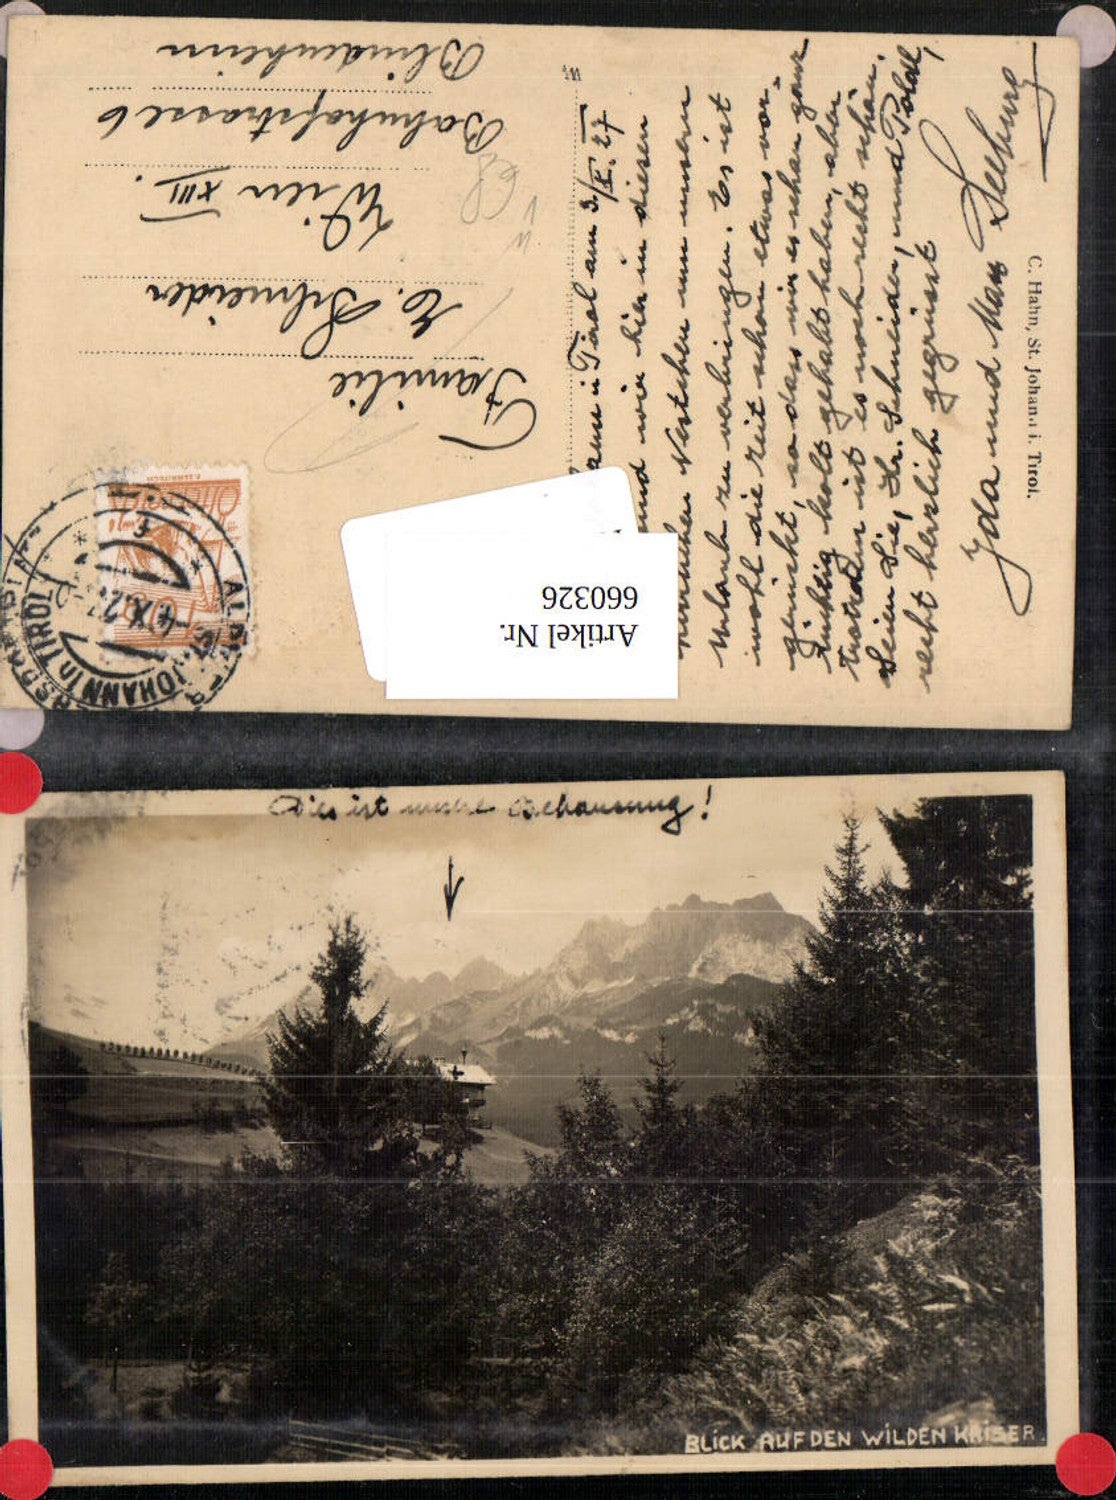 Familie
E. Schneider
Wien XIII.
Bahnhofstrasse 6
Blindenheim
in Tirol am 3./X. 27
sind wir hier in diesem
Nestchen um unseren
Urlaub zu verbringen. Es ist
wohl die Zeit schon etwas vor-
gerückt, so dass wir es schon ganz
tüchtig kalt gehabt haben, aber
trotzdem ist es noch recht schön.
Seien Sie, Hr. Schneider, und Poldl,
recht herzlich gegrüsst
Ida und Max Seeburg
C. Hahn, St. Johann i. Tirol.
ST. JOHANN IN TIROL
Artikel Nr.
660326
Dies ist unsere Behausung!
BLICK AUF DEN WILDEN KAISER.